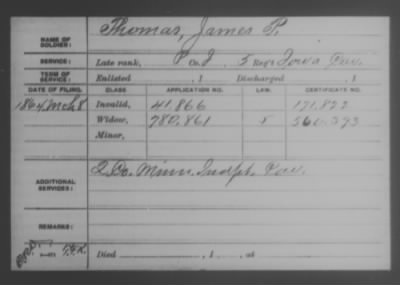 NAME OF SOLDIER: Thomas, James P.
SERVICE: Late rank, P Co. I, 5 Reg't Iowa Cav.
TERM OF SERVICE: Enlisted , 1 Discharged , 1
DATE OF FILING. CLASS. APPLICATION NO. LAW. CERTIFICATE NO.
1864 Mch 8 Invalid, 41,866 171,822
Widow, 780,861 560,373
Minor,
ADDITIONAL SERVICES: 2 Minn. Cav.
REMARKS:
Died , 1 , at